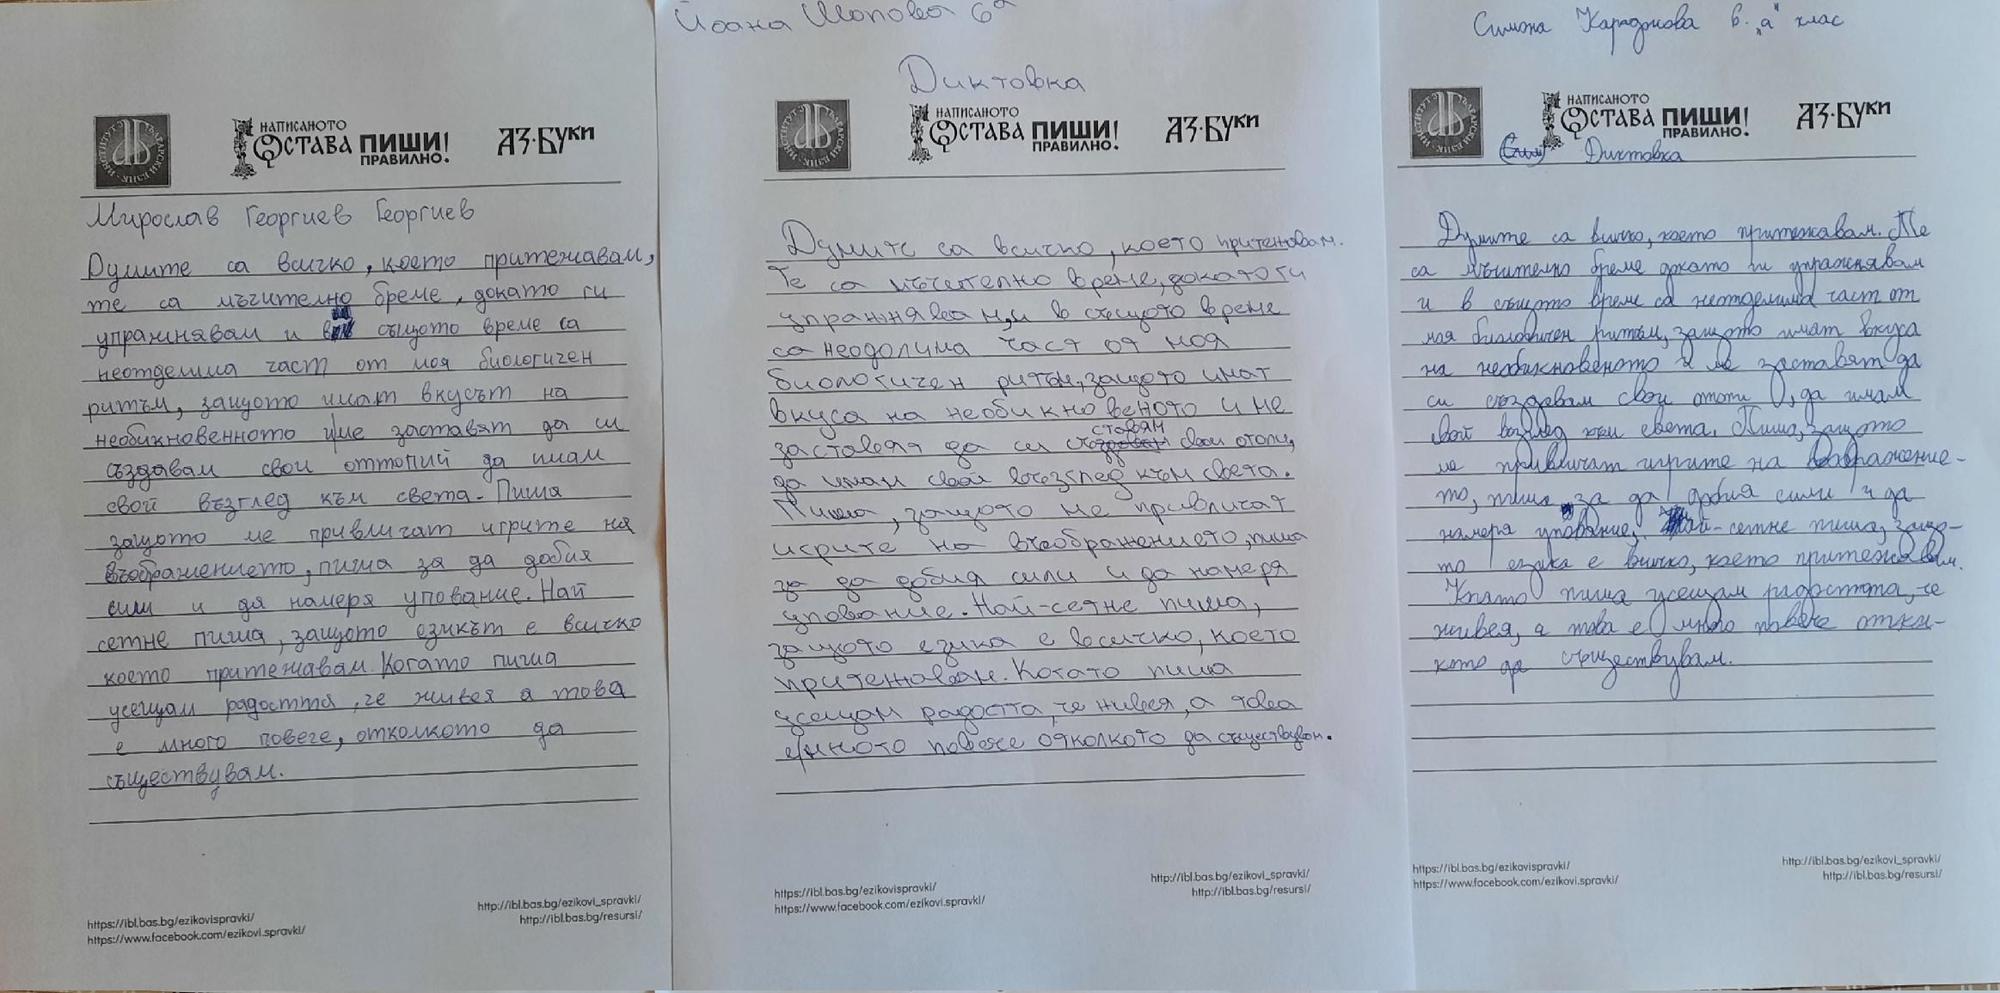 НАПИСАНОТО
ОСТАВА
ПИШИ!
ПРАВИЛНО!
АЗ·БУКИ
Мирослав Георгиев Георгиев
Думите са всичко, което притежавам,
те са мъчително бреме, докато ги
упражнявам и в същото време са
неотделима част от моя биологичен
ритъм, защото имат вкусът на
необикновенното и ме заставят да си
създавам свои оттопий да имам
свой възглед към света. Пиша
защото ме привличат игрите на
въображението, пиша за да добия
сили и да намеря упование. Най
сетне пиша, защото езикът е всичко
което притежавам. Когато пиша
усещам радостта, че живея а това
е много повече, отколкото да
съществувам.
https://ibl.bas.bg/ezikovispravki/
https://www.facebook.com/ezikovi.spravki/
http://ibl.bas.bg/ezikovi_spravki/
http://ibl.bas.bg/resursi/
Йоана Шопова 6а
Диктовка
НАПИСАНОТО
ОСТАВА
ПИШИ!
ПРАВИЛНО!
АЗ·БУКИ
Думите са всичко, което притежавам.
Те са мъчително време, докато ги
упражнявам, и в същото време
са неодолима част от моя
биологичен ритъм, защото имат
вкуса на необикновеното и ме
заставят да си ставям свои отопи,
да имам свой възглед към света.
Пиша, защото ме привличат
игрите на въображението, пиша
за да добия сили и да намеря
упование. Най-сетне пиша,
защото езика е всичко, което
притежавам. Когато пиша
усещам радостта, че живея, а това
е много повече отколкото да съществувам.
https://ibl.bas.bg/ezikovispravki/
https://www.facebook.com/ezikovi.spravki/
http://ibl.bas.bg/ezikovi_spravki/
http://ibl.bas.bg/resursi/
Симона Караджова 6. "а" клас
НАПИСАНОТО
ОСТАВА
ПИШИ!
ПРАВИЛНО!
АЗ·БУКИ
Диктовка
Думите са всичко, което притежавам. Те
са мъчително бреме докато ги упражнявам
и в същото време са неотделима част от
моя биологичен ритъм, защото имат вкуса
на необикновеното и ме заставят да
си създавам свои отопи, да имам
свой възглед към света. Пиша, защото
ме привличат игрите на въображение-
то, пиша за да добия сили и да
намеря упование. Най-сетне пиша, защо-
то езика е всичко, което притежавам.
Когато пиша усещам радостта, че
живея, а това е много повече откол-
кото да съществувам.
https://ibl.bas.bg/ezikovispravki/
https://www.facebook.com/ezikovi.spravki/
http://ibl.bas.bg/ezikovi_spravki/
http://ibl.bas.bg/resursi/